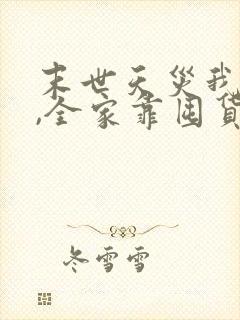 末世天災我
,全家靠囤貨
冬雪雪